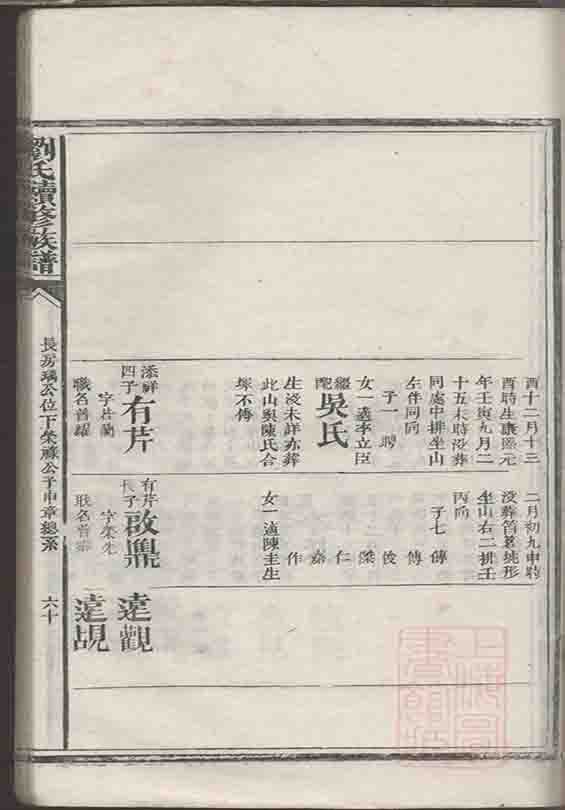 酉十二月十三
酉時生康熙元
年壬寅九月二
十五未時没葬
同處中排坐山
左伴同向
子一 聘
女一適李立臣
繼配吳氏
生没未詳亦葬
此山與陳氏合
塚不傳
添祥四子有芹
字芹蘭
職名普耀
二月初九申時
没葬筲箕坵形
坐山右二排壬
丙向
子七 傳
傅
俊
傑
仁
嘉
作
女一適陳圭生
有芹長子啟鼎
字榮先
職名普
遠觀
遠覘
劉氏續修族譜
長房璃公位下榮祿公子申章總系
六十
上海圖書館藏